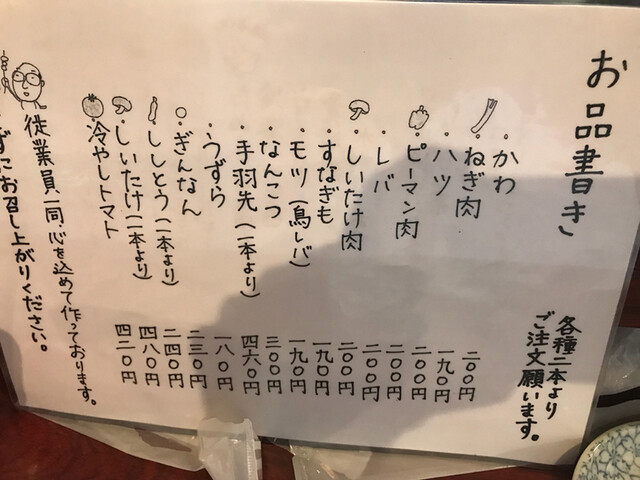 お品書き
各種二本より
ご注文願います。
・かわ 二〇〇円
・ねぎ肉 一九〇円
・ハツ 二〇〇円
・ピーマン肉 二〇〇円
・レバ 二〇〇円
・しいたけ肉 二〇〇円
・すなぎも 一九〇円
・モツ(鳥レバ) 一九〇円
・なんこつ 三〇〇円
・手羽先(一本より) 四六〇円
・うずら 一八〇円
・ぎんなん 二三〇円
・ししとう(一本より) 二四〇円
・しいたけ(一本より) 四八〇円
・冷やしトマト 四二〇円
従業員一同、心を込めて作っております。
ずにお召し上がりください。